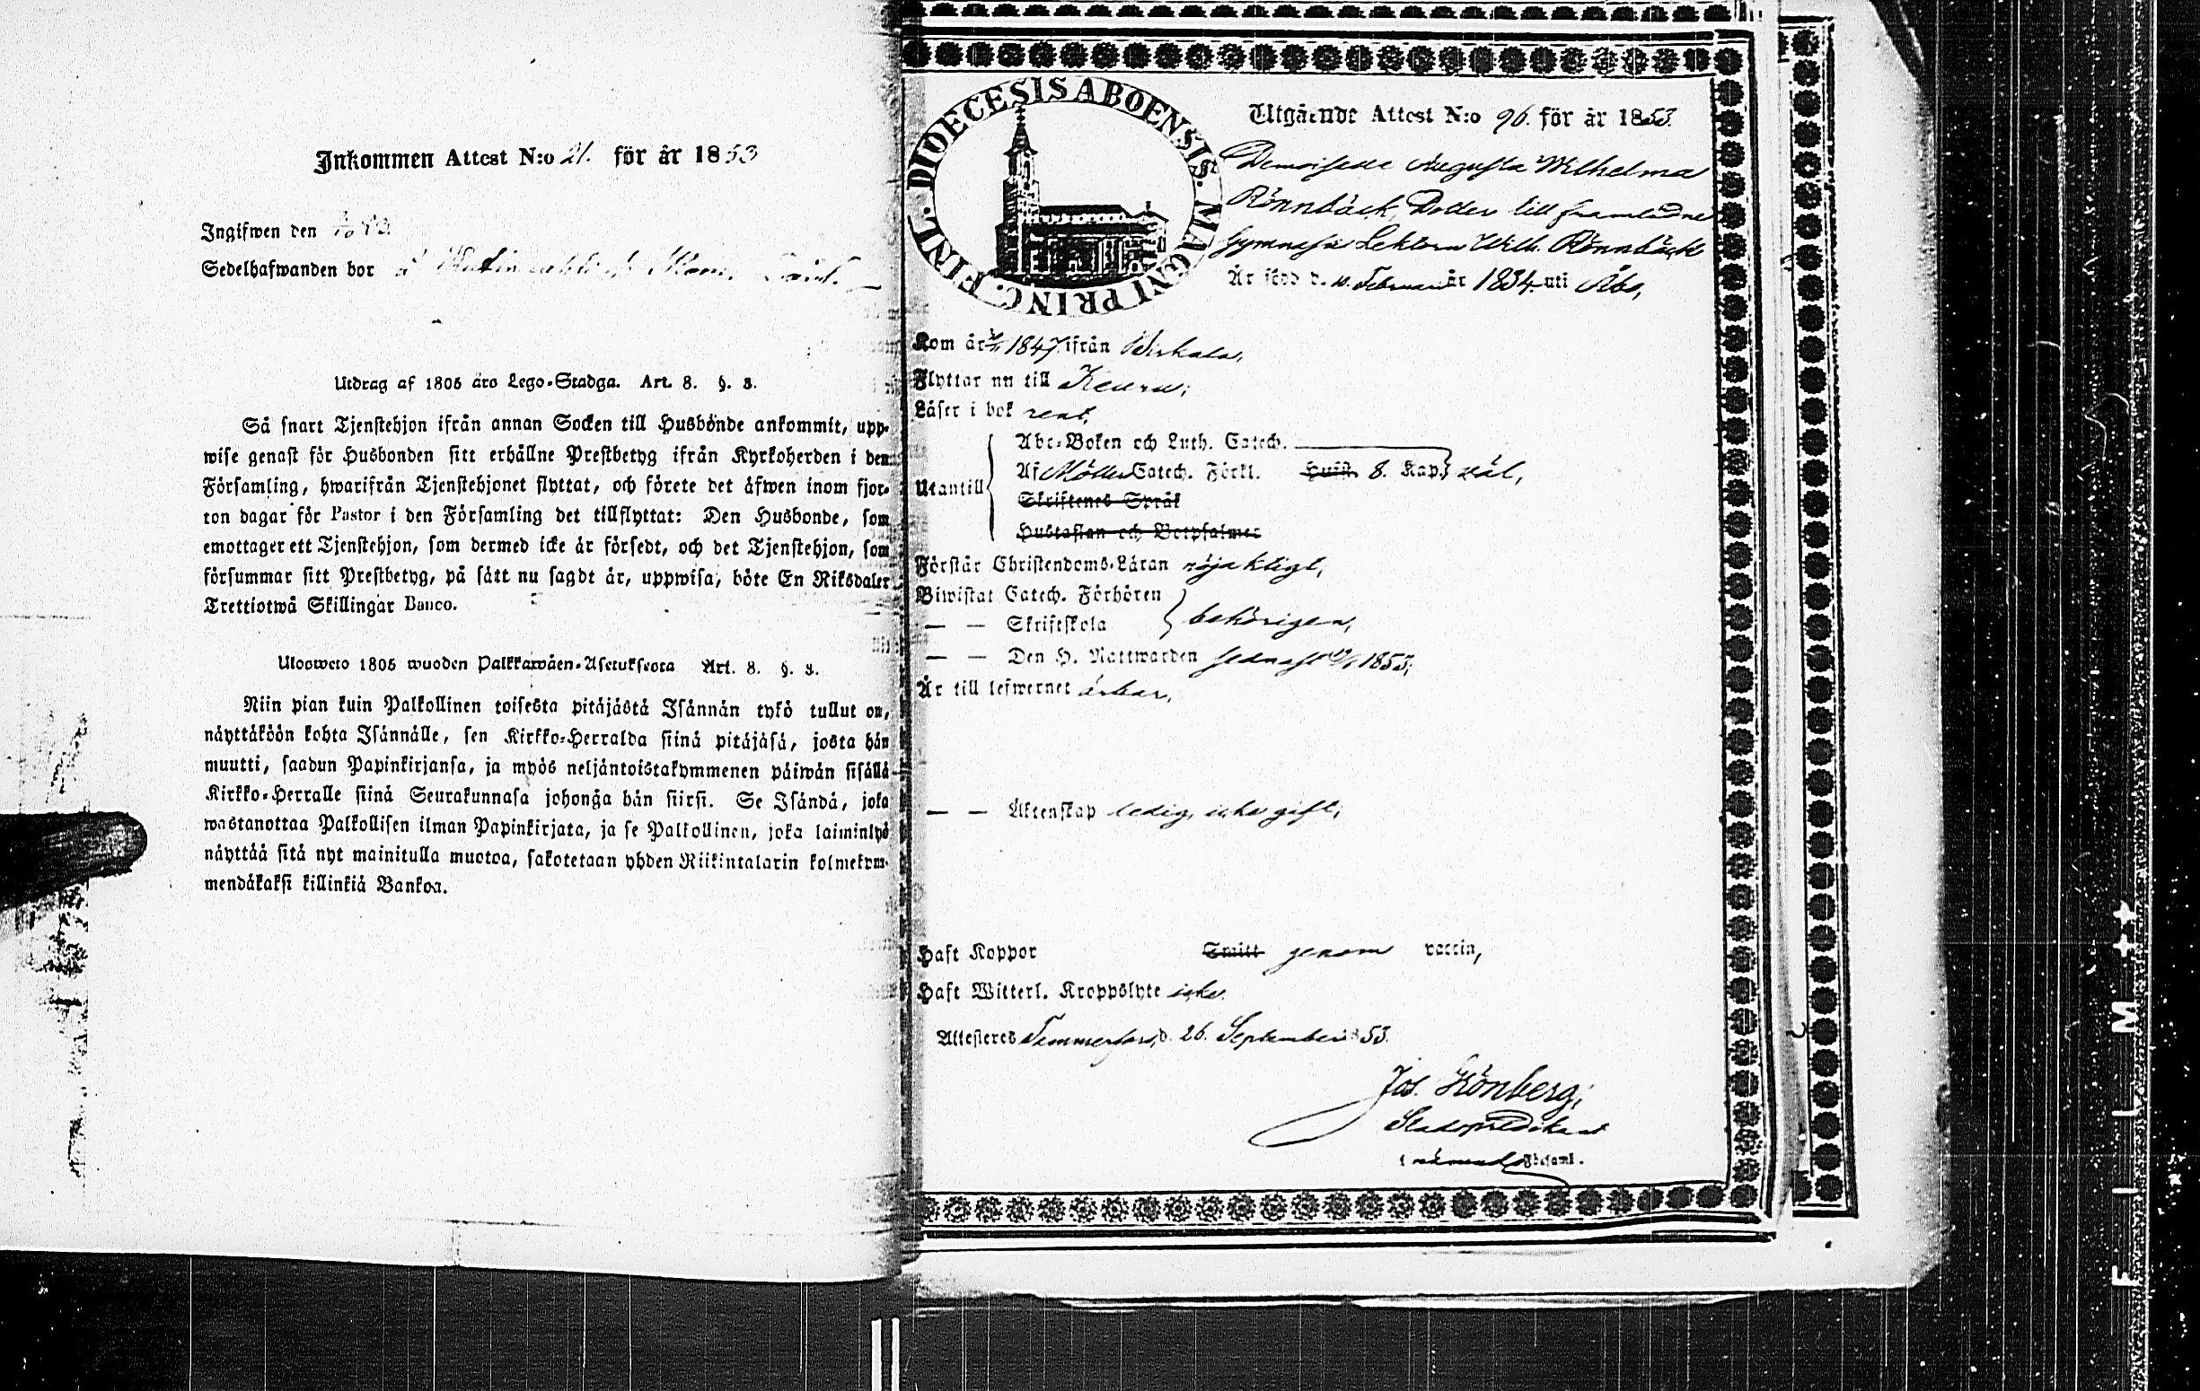 Inkommen Attest N:o 21. för år 1853
Ingifwen den
Sedelhafwanden bor
Utdrag af 1805 års Lego-Stadga. Art. 8. §. 3.
Så snart Tjenstehjon ifrån annan Socken till Husbonde ankommit, upp-
wise genast för Husbonden sitt erhållne Prestbetyg ifrån Kyrkoherden i den
Församling, hwarifrån Tjenstehjonet flyttat, och förete det äfwen inom fjor-
ton dagar för Pastor i den Församling det tillflyttat: Den Husbonde, som
emottager ett Tjenstehjon, som dermed icke är försedt, och det Tjenstehjon, som
försummar sitt Prestbetyg, på sätt nu sagdt är, uppwisa, böte En Riksdaler
Trettiotwå Skillingar Banco.
Ulosweto 1805 wuoden Palkkawäen-Asetuksesta Art. 8. §. 3.
Niin pian kuin Palkollinen toisesta pitäjästä Isännän tykö tullut on,
näyttäköön kohta Isännälle, sen Kirkko-Herralda siinä pitäjäsä, josta hän
muutti, saadun Papinkirjansa, ja myös neljäntoistakymmenen päiwän sisällä
Kirkko-Herralle siinä Seurakunnasa johonga hän siirsi. Se Isändä, joka
wastanottaa Palkollisen ilman Papinkirjata, ja se Palkollinen, joka laiminlyö
näyttää sitä nyt mainitulla muotoa, sakotetaan yhden Riikintalarin kolmekym-
mendäkaksi killinkiä Bankoa.
DIOECESIS ABOENSIS. MAGNI PRINC. FINL.
Utgående Attest N:o 96. för år 1853.
Demoiselle Augusta Wilhelma
Rönnbäck, Dotter till framledne
Gymnasii Lektorn Wilh. Rönnbäck
Är född d. 10. Februari år 1834 uti Åbo,
Kom år 1847 ifrån Birkala,
Flyttar nu till Keuru;
Läser i bok rent,
Abc-Boken och Luth. Catech.
Utantill Af Möllers Catech. Förkl. Husst. 8. Kap. väl,
Skriftenes Språk
Hustaflan och Botpsalmer
Förstår Christendoms-Läran nöjaktigt,
Biwistat Catech. Förhören
— — Skriftskola behörigen,
— — Den H. Nattwarden sednast 1853;
Är till lefwernet ärbar,
— — Äktenskap ledig, icke gift;
Haft Koppor Smitt genom vaccin,
Haft Witterl. Kroppslyte icke.
Attesteres Tammerfors, d. 26. September 1853.
Jos. Grönberg,
Stadspredikant
i nämnde Församl.
FILM